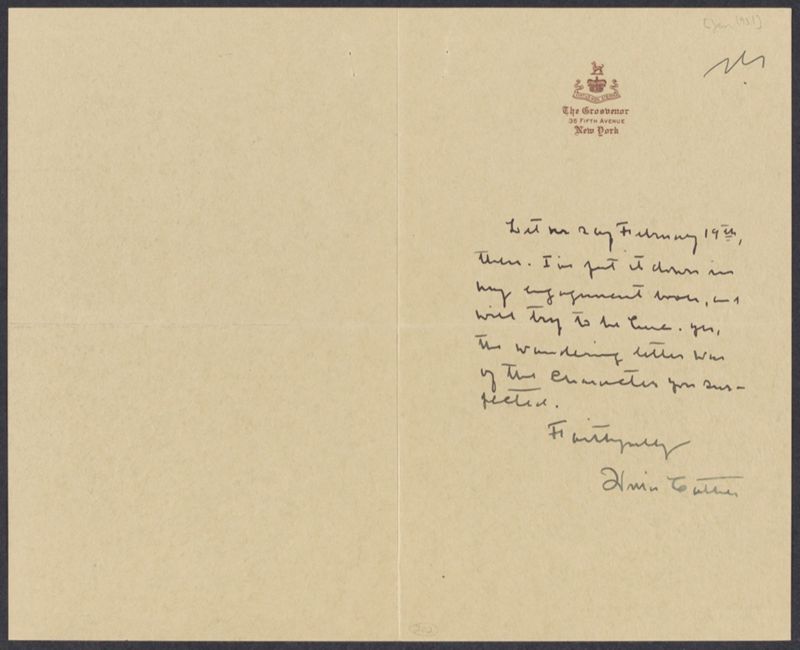 [Jan 1931]
The Grosvenor
35 Fifth Avenue
New York
Let us say February 19th,
then. I've put it down in
my engagement book, and
will try to be here. Yes,
the wandering letter was
of the character you sus-
pected.
Faithfully
Willa Cather